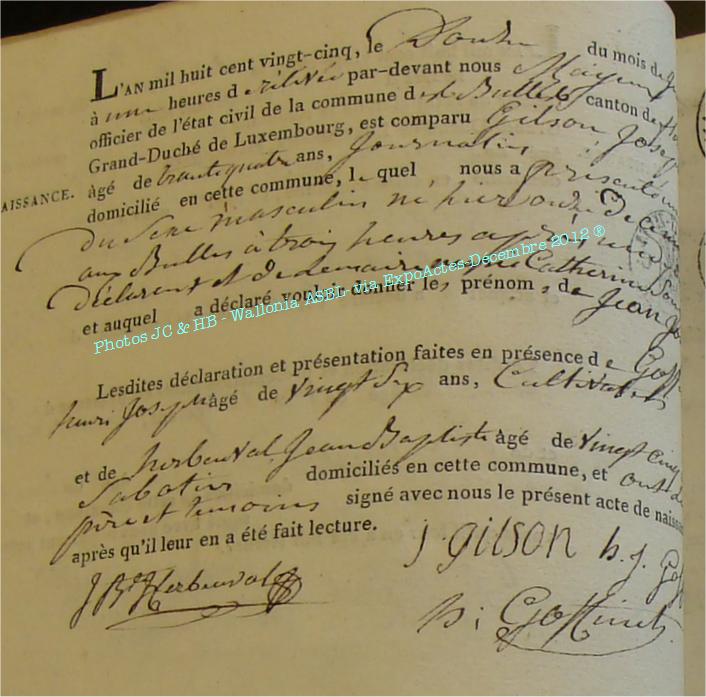 L'AN mil huit cent vingt-cinq, le Douze du mois de
à une heures de relevée par-devant nous Mayeur
officier de l'état civil de la commune des Bulles canton de
Grand-Duché de Luxembourg, est comparu Gilson Josep
NAISSANCE. âgé de trentequatre ans, Journalier
domicilié en cette commune, le quel nous a présenté
Du Sexe masculin né hier onze De ce
aux Bulles à trois heures après
Déclarent et De Catherine
et auquel a déclaré vouloir donner les prénoms de Jean
Photos JC & HB - Wallonia ASBL- via ExpoActes-Décembre 2012 ®
Lesdites déclaration et présentation faites en présence de Goff
henri Joseph âgé de vingt Six ans, Cultivateur
et de herbeuval Jean Baptiste âgé de vingt cinq
Sabotier domiciliés en cette commune, et ont
père et temoins signé avec nous le présent acte de naiss
après qu'il leur en a été fait lecture.
J. gilson h. j. Gof
J Bte Herbeuval
Goffinet